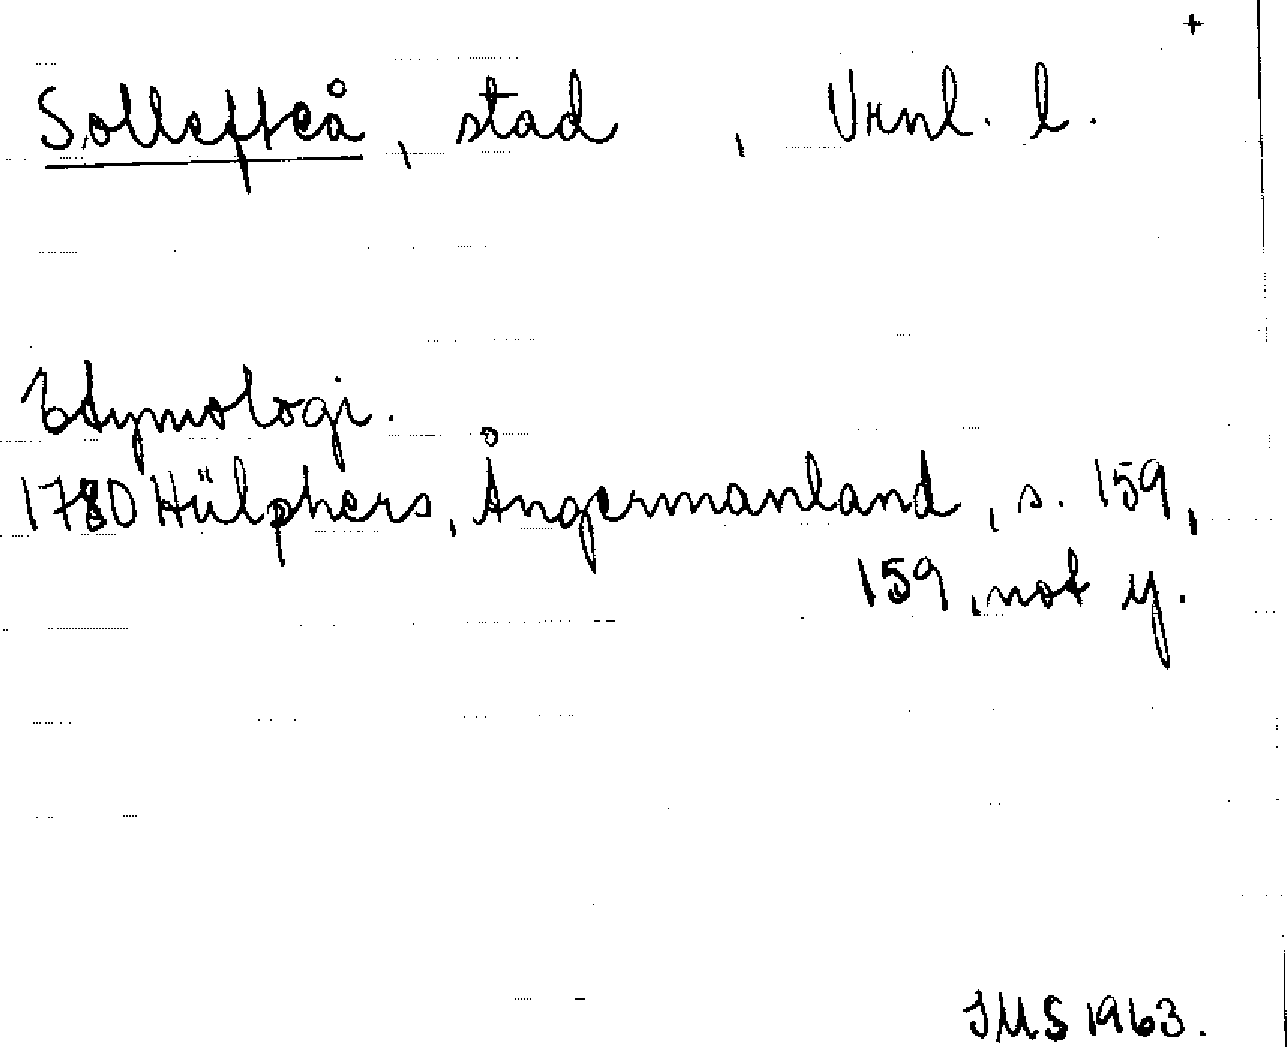 +
Sollefteå, stad , Vrnl. l.
Etymologi.
1780 Hülphers, Ångermanland, s. 159,
159, not y.
JMS 1963.